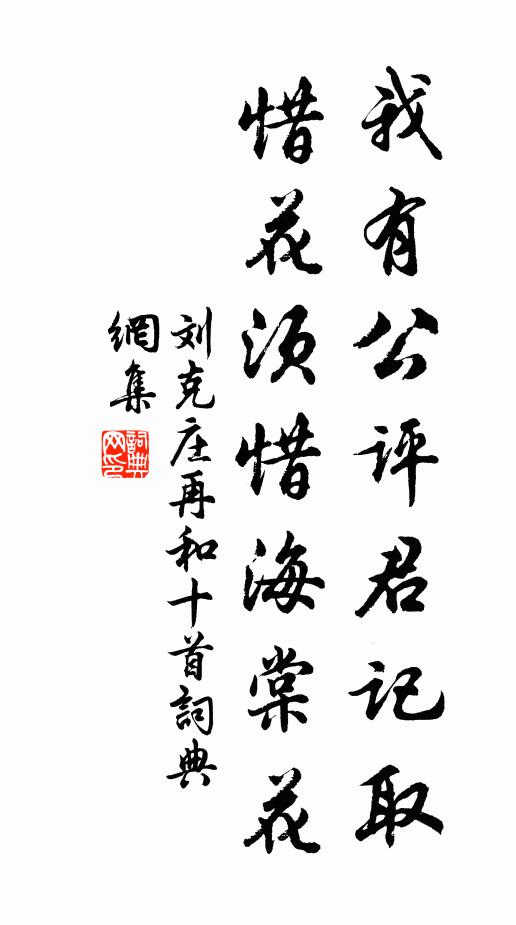 我有公评君记取
惜花须惜海棠花
刘克庄再和十首詞典
網集
詞典
网印